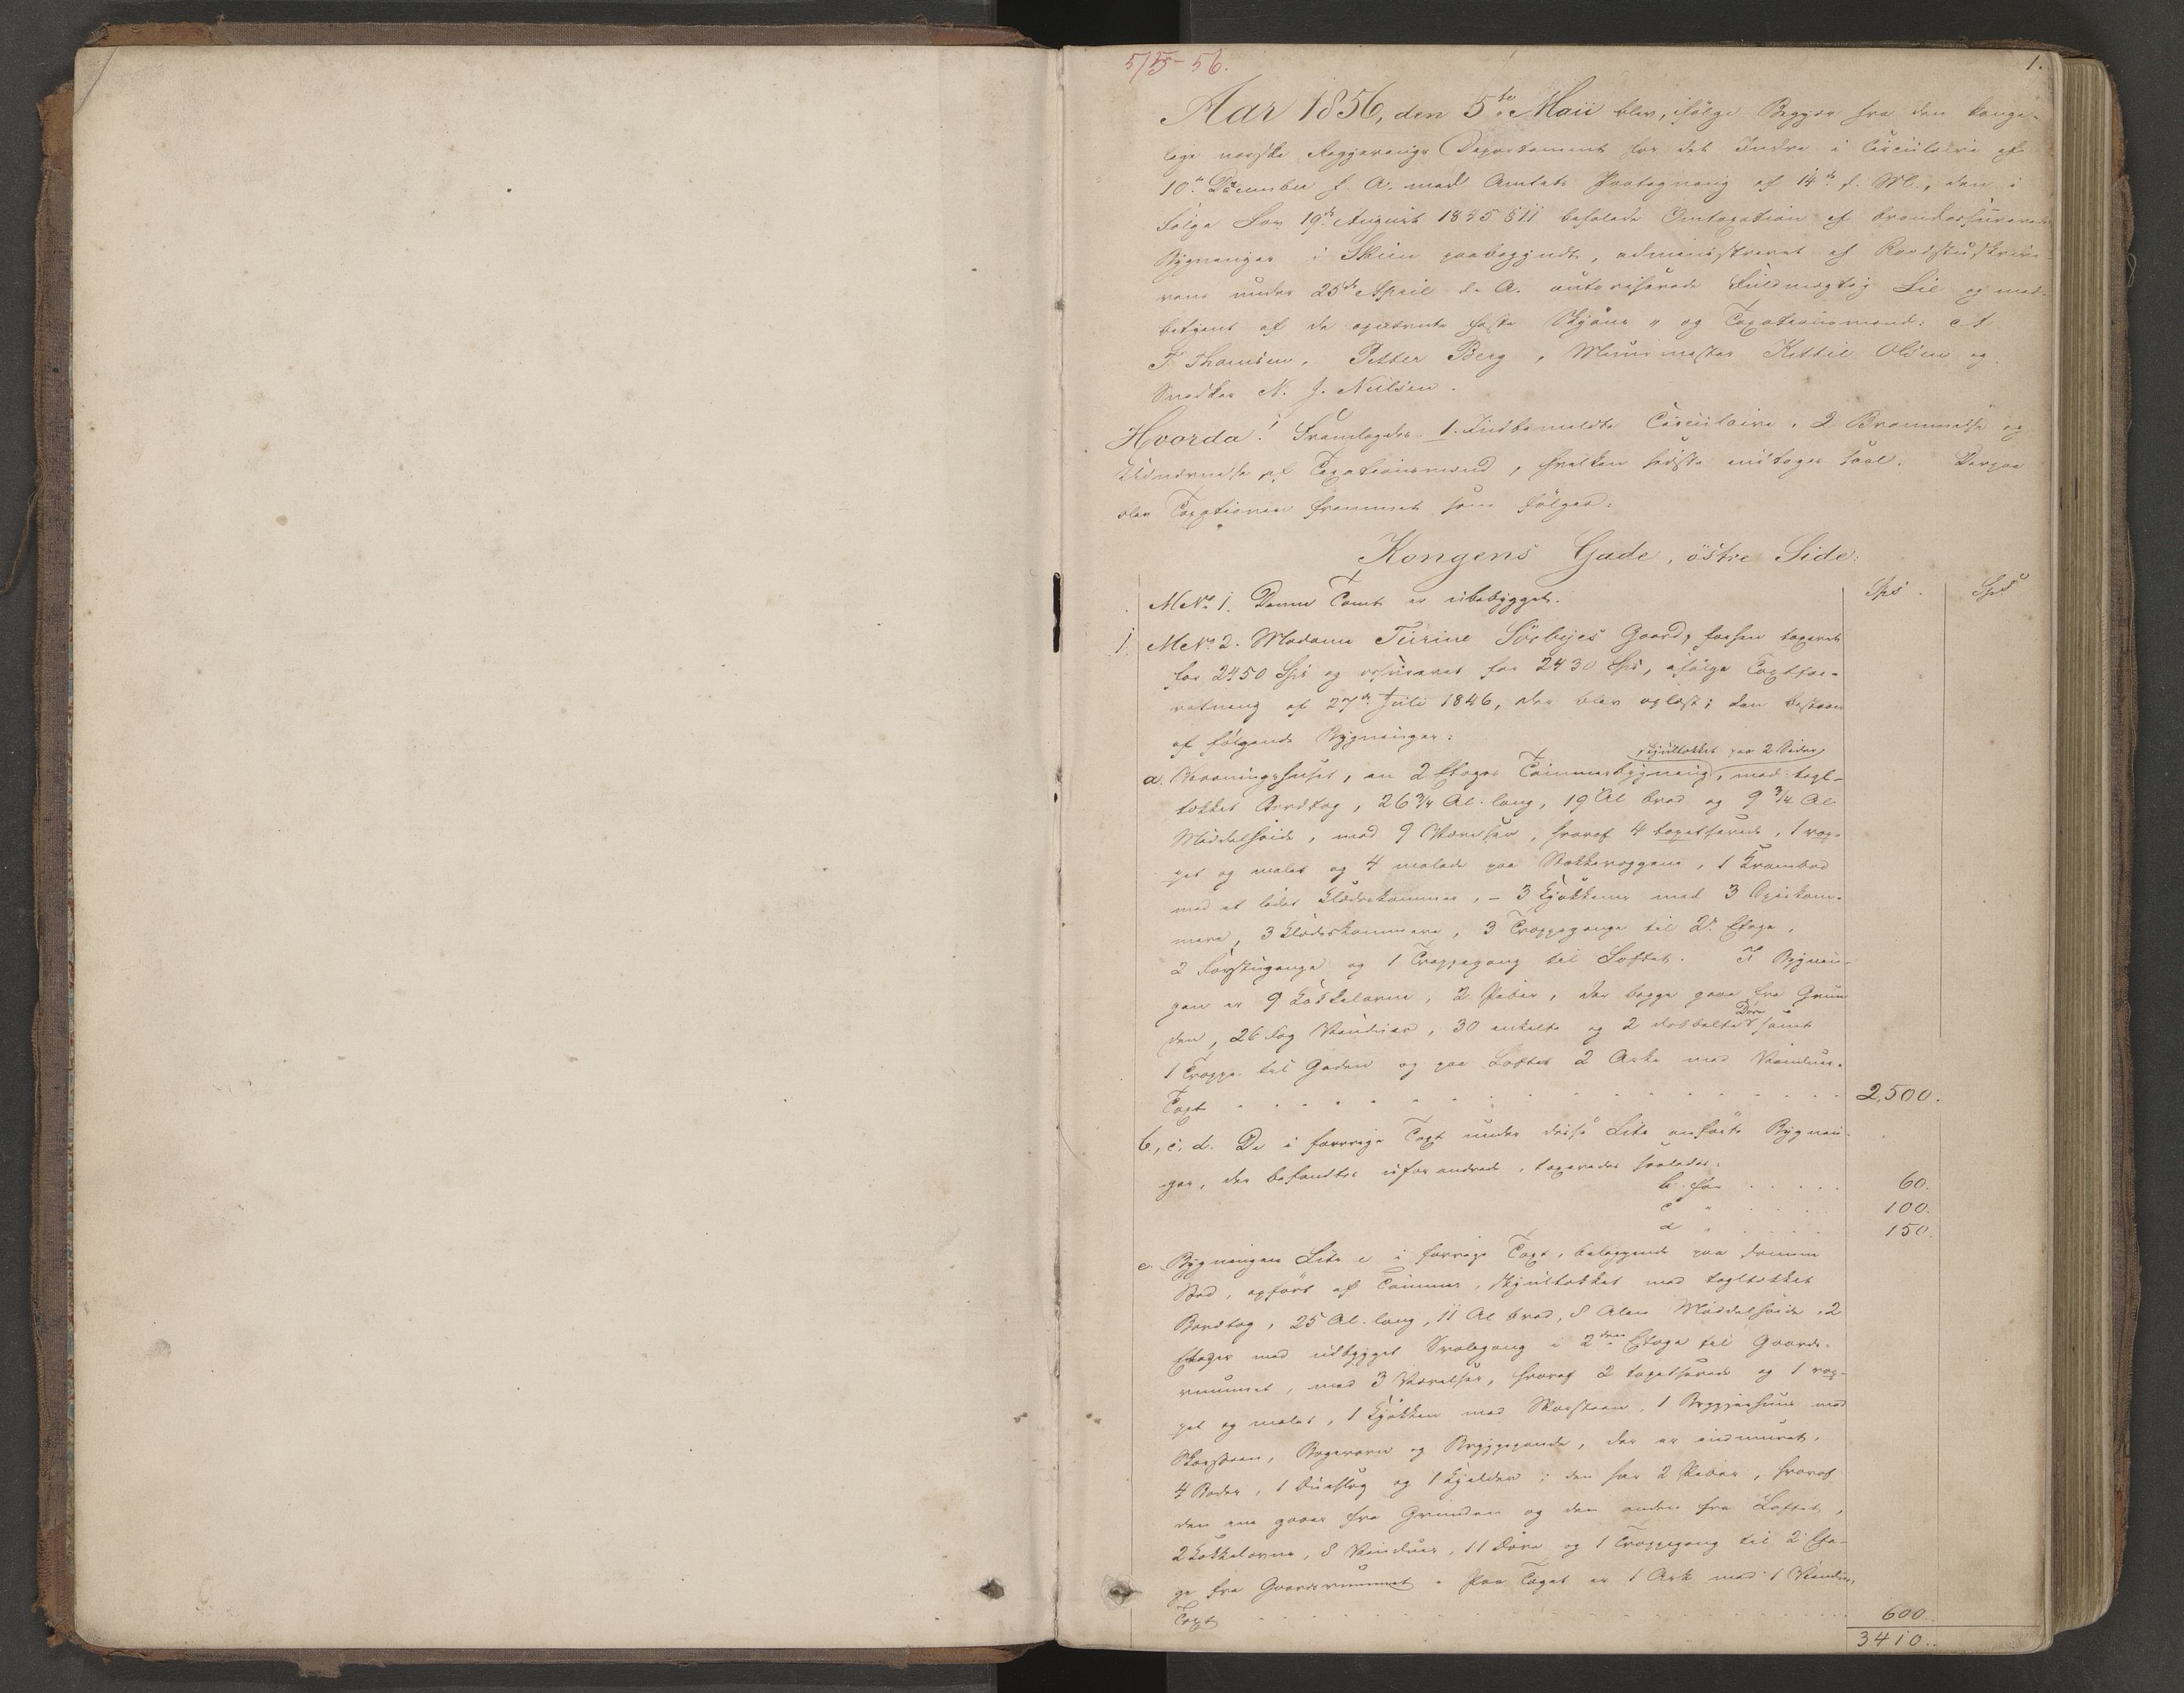 5/5-56.
1.
Aar 1856, den 5te Maii blev, ifölge Begjær fra den konge-
lige norske Regjerings Departement for det Indre i Circulaire af
10de December f. A. med Amtets Paategning af 14de s. M., den i
Følge Lov 19de August 1845 § 11 befalede Omtaxation af brandassurerede
Bygninger i Skien paabegyndt, administreret af Raadstuskrive-
rens under 25de April d. A. autoriserede Fuldmægtig Lie og med-
betjent af de opnævnte faste Skjöns- og Taxationsmænd:
T. Thomsen, Petter Berg, Muurmester Kittil Olsen og
Snedker N. J. Nielsen.
Hvorda! Fremlagdes 1. Indbemeldte Circulaire, 2 Brammelse og
Udnævnelse af Taxationsmænd, hvilken sidste indtages saal. Derpaa
blev Taxationen fremmet som fölger:
Kongens Gade, östre Side:
Spd Spd
MNo 1. Denne Tomt er ubebygget.
1. MNo 2. Madame Turine Sörbyes Gaard, forhen taxeret
for 2450 Spd og assureret for 2430 Spd, ifölge Taxtfor-
retning af 27de Juli 1846, der blev oplæst; den bestaaer
af fölgende Bygninger:
skjultækket paa 2 Sider
a. Vaaningshuset, en 2 Etages Tömmerbygning, med tegl-
tækket Bordtag, 26 3/4 Al. lang, 19 Al bred og 9 3/4 Al
Middelhöide, med 9 Værelser, hvoraf 4 tapetserede, 1 rap-
pet og malet og 4 malede paa Stokkevæggene, 1 Krambod
med et lidet Klædekammer, - 3 Kjökkener med 3 Spiskam-
mere, 3 Klædeskammere, 3 Trappegange til 2. Etage,
2 Forstugange og 1 Trappegang til Loftet. I Bygnin-
gen er 9 Kakkelovne, 2 Piber, der begge gaae fra Grun
Döre
den, 26 Fag Vinduer, 30 enkelte og 2 dobbelte samt
1 Trappe til Gaden og paa Loftet 2 Arke med Vinduer.
Taxt 2,500.
b., c, d. De i forrige Taxt under disse Litr anförte Bygnin-
ger, der befandtes uforandrede, taxeredes saaledes:
b. for 60.
c " 100.
d " 150.
e. Bygningen Litr e i forrige Taxt, beliggende paa samme
Sted, opfört af Tömmer, skjultækket med tegltækket
Bordtag, 25 Al. lang, 11 Al bred, 8 Alen Middelhöide, 2
Etages med udbygget Svalegang i 2den Etage til Gaards-
rummet, med 3 Værelser, hvoraf 2 tapetserede og 1 rap-
pet og malet, 1 Kjökken med Skorsteen, 1 Bryggerhuus med
Skorsteen, Bagerovn og Bryggepande, der er indmuret,
4 Boder, 1 Dueslag og 1 Kjelder; den har 2 Piber, hvoraf
den ene gaaer fra Grunden og den anden fra Loftet,
2 Kakkelovne, 8 Vinduer, 11 Döre og 1 Trappegang til 2. Eta-
ge fra Gaardsrummet. Paa Taget er 1 Ark med 1 Vindue,
Taxt 600.
3410.